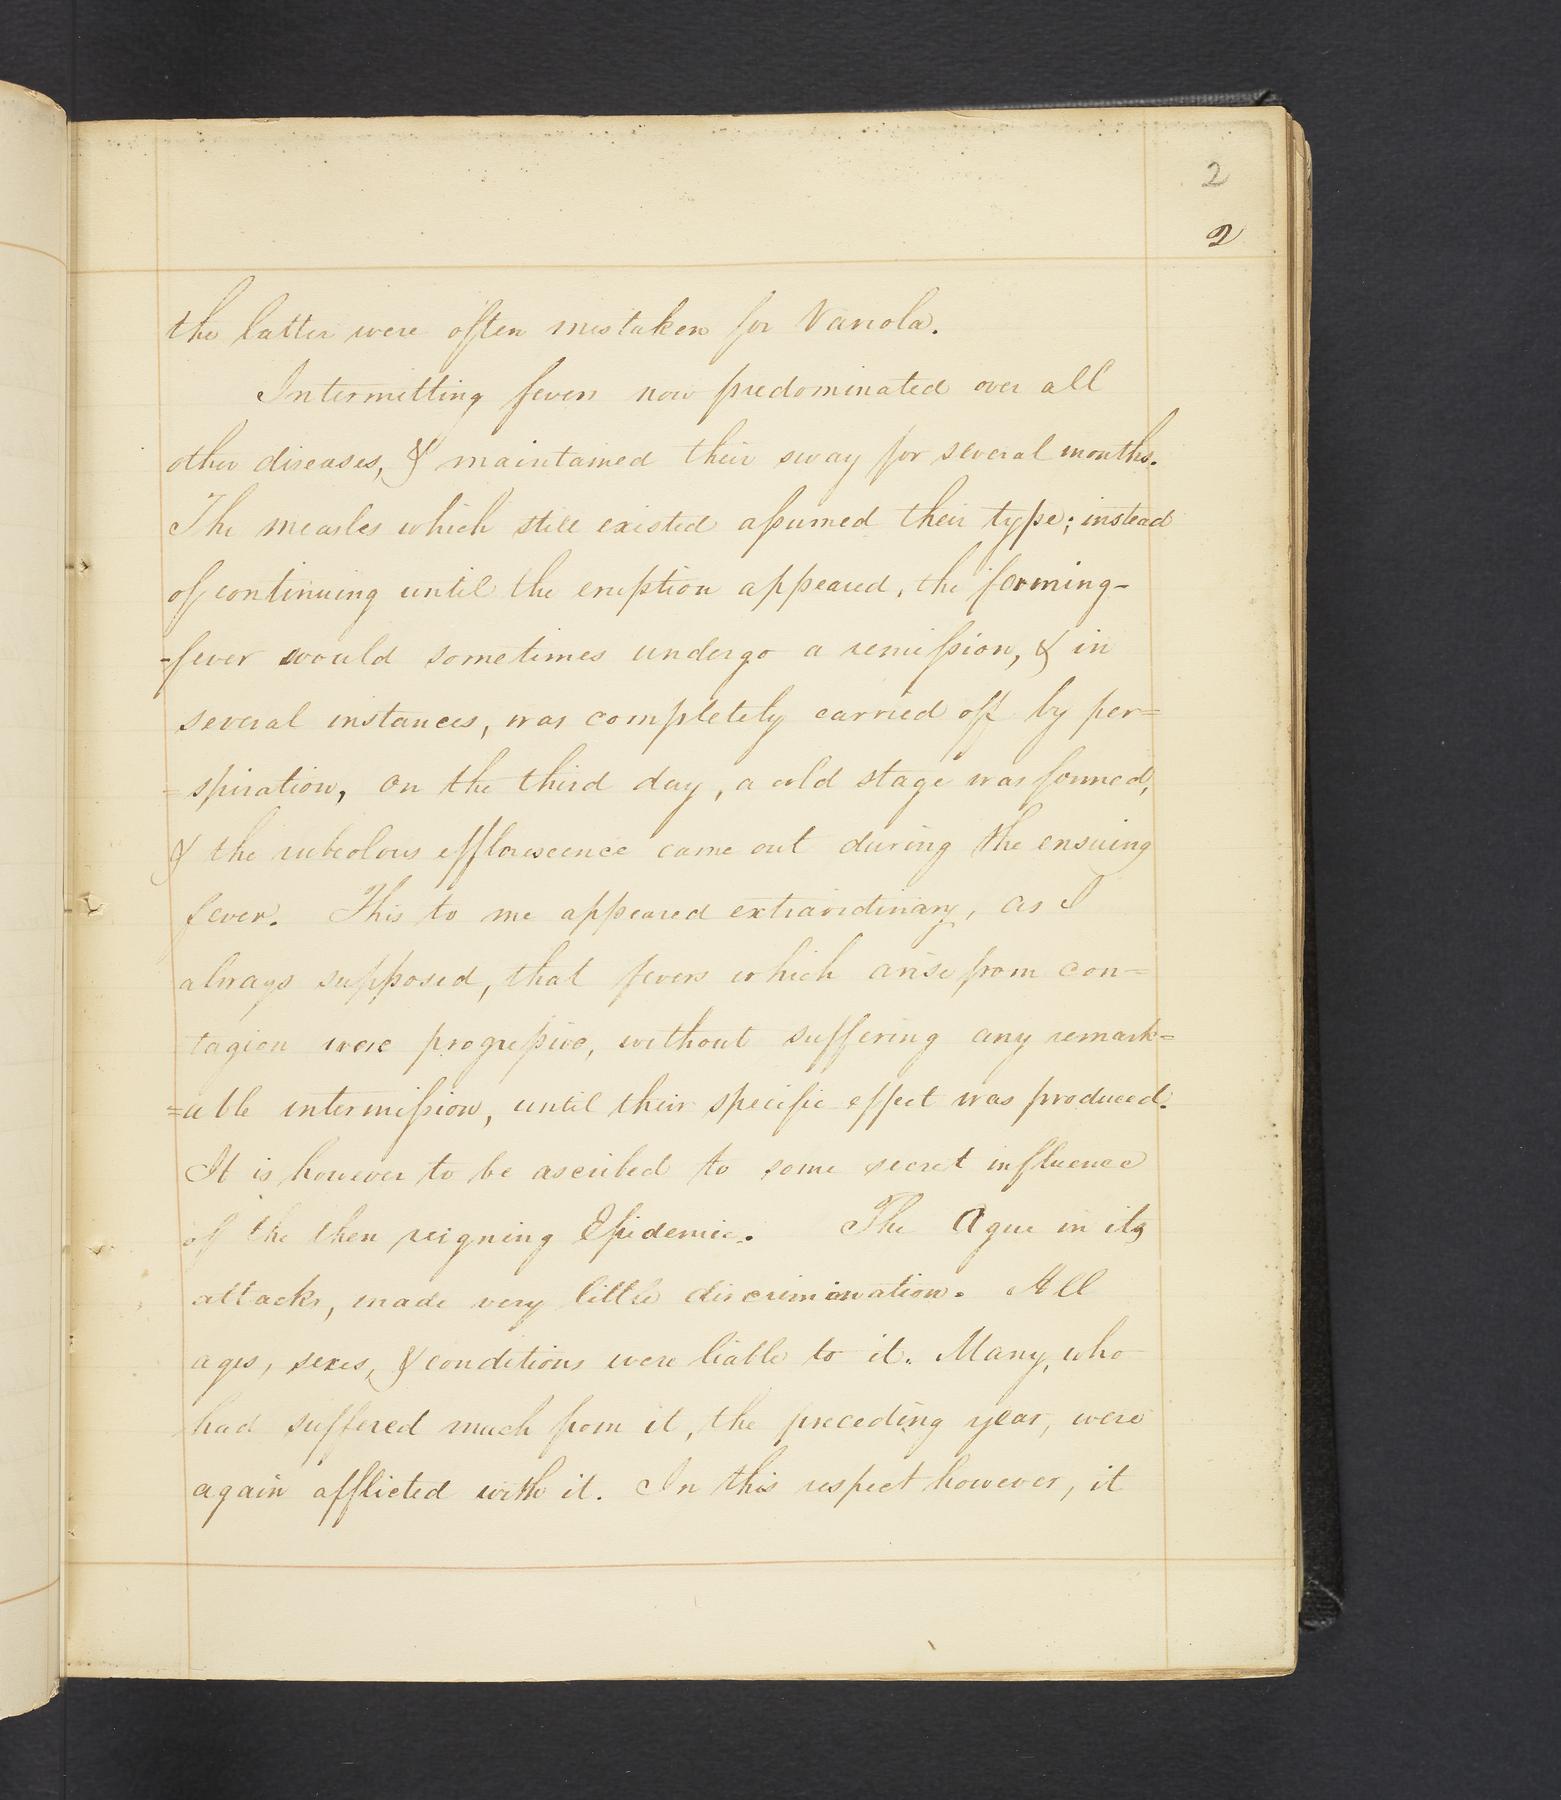 2
2
the latter were often mistaken for Variola.
Intermitting fevers now predominated over all
other diseases, & maintained their sway for several months.
The measles which still existed assumed their type; instead
of continuing until the eruption appeared, the forming-
-fever would sometimes undergo a remission, & in
several instances, was completely carried off by per=
=spiration, on the third day, a cold stage was formed,
& the rubeolous efflorescence came out during the ensuing
fever. This to me appeared extraordinary, as I
always supposed, that fevers which arise from con=
=tagion were progressive, without suffering any remark=
=able intermission, until their specific effect was produced.
It is however to be ascribed to some secret influence
of the then reigning Epidemic. The Ague in its
attacks, made very little discrimination. All
ages, sexes, & conditions were liable to it. Many, who
had suffered much from it, the preceding year, were
again afflicted with it. In this respect however, it